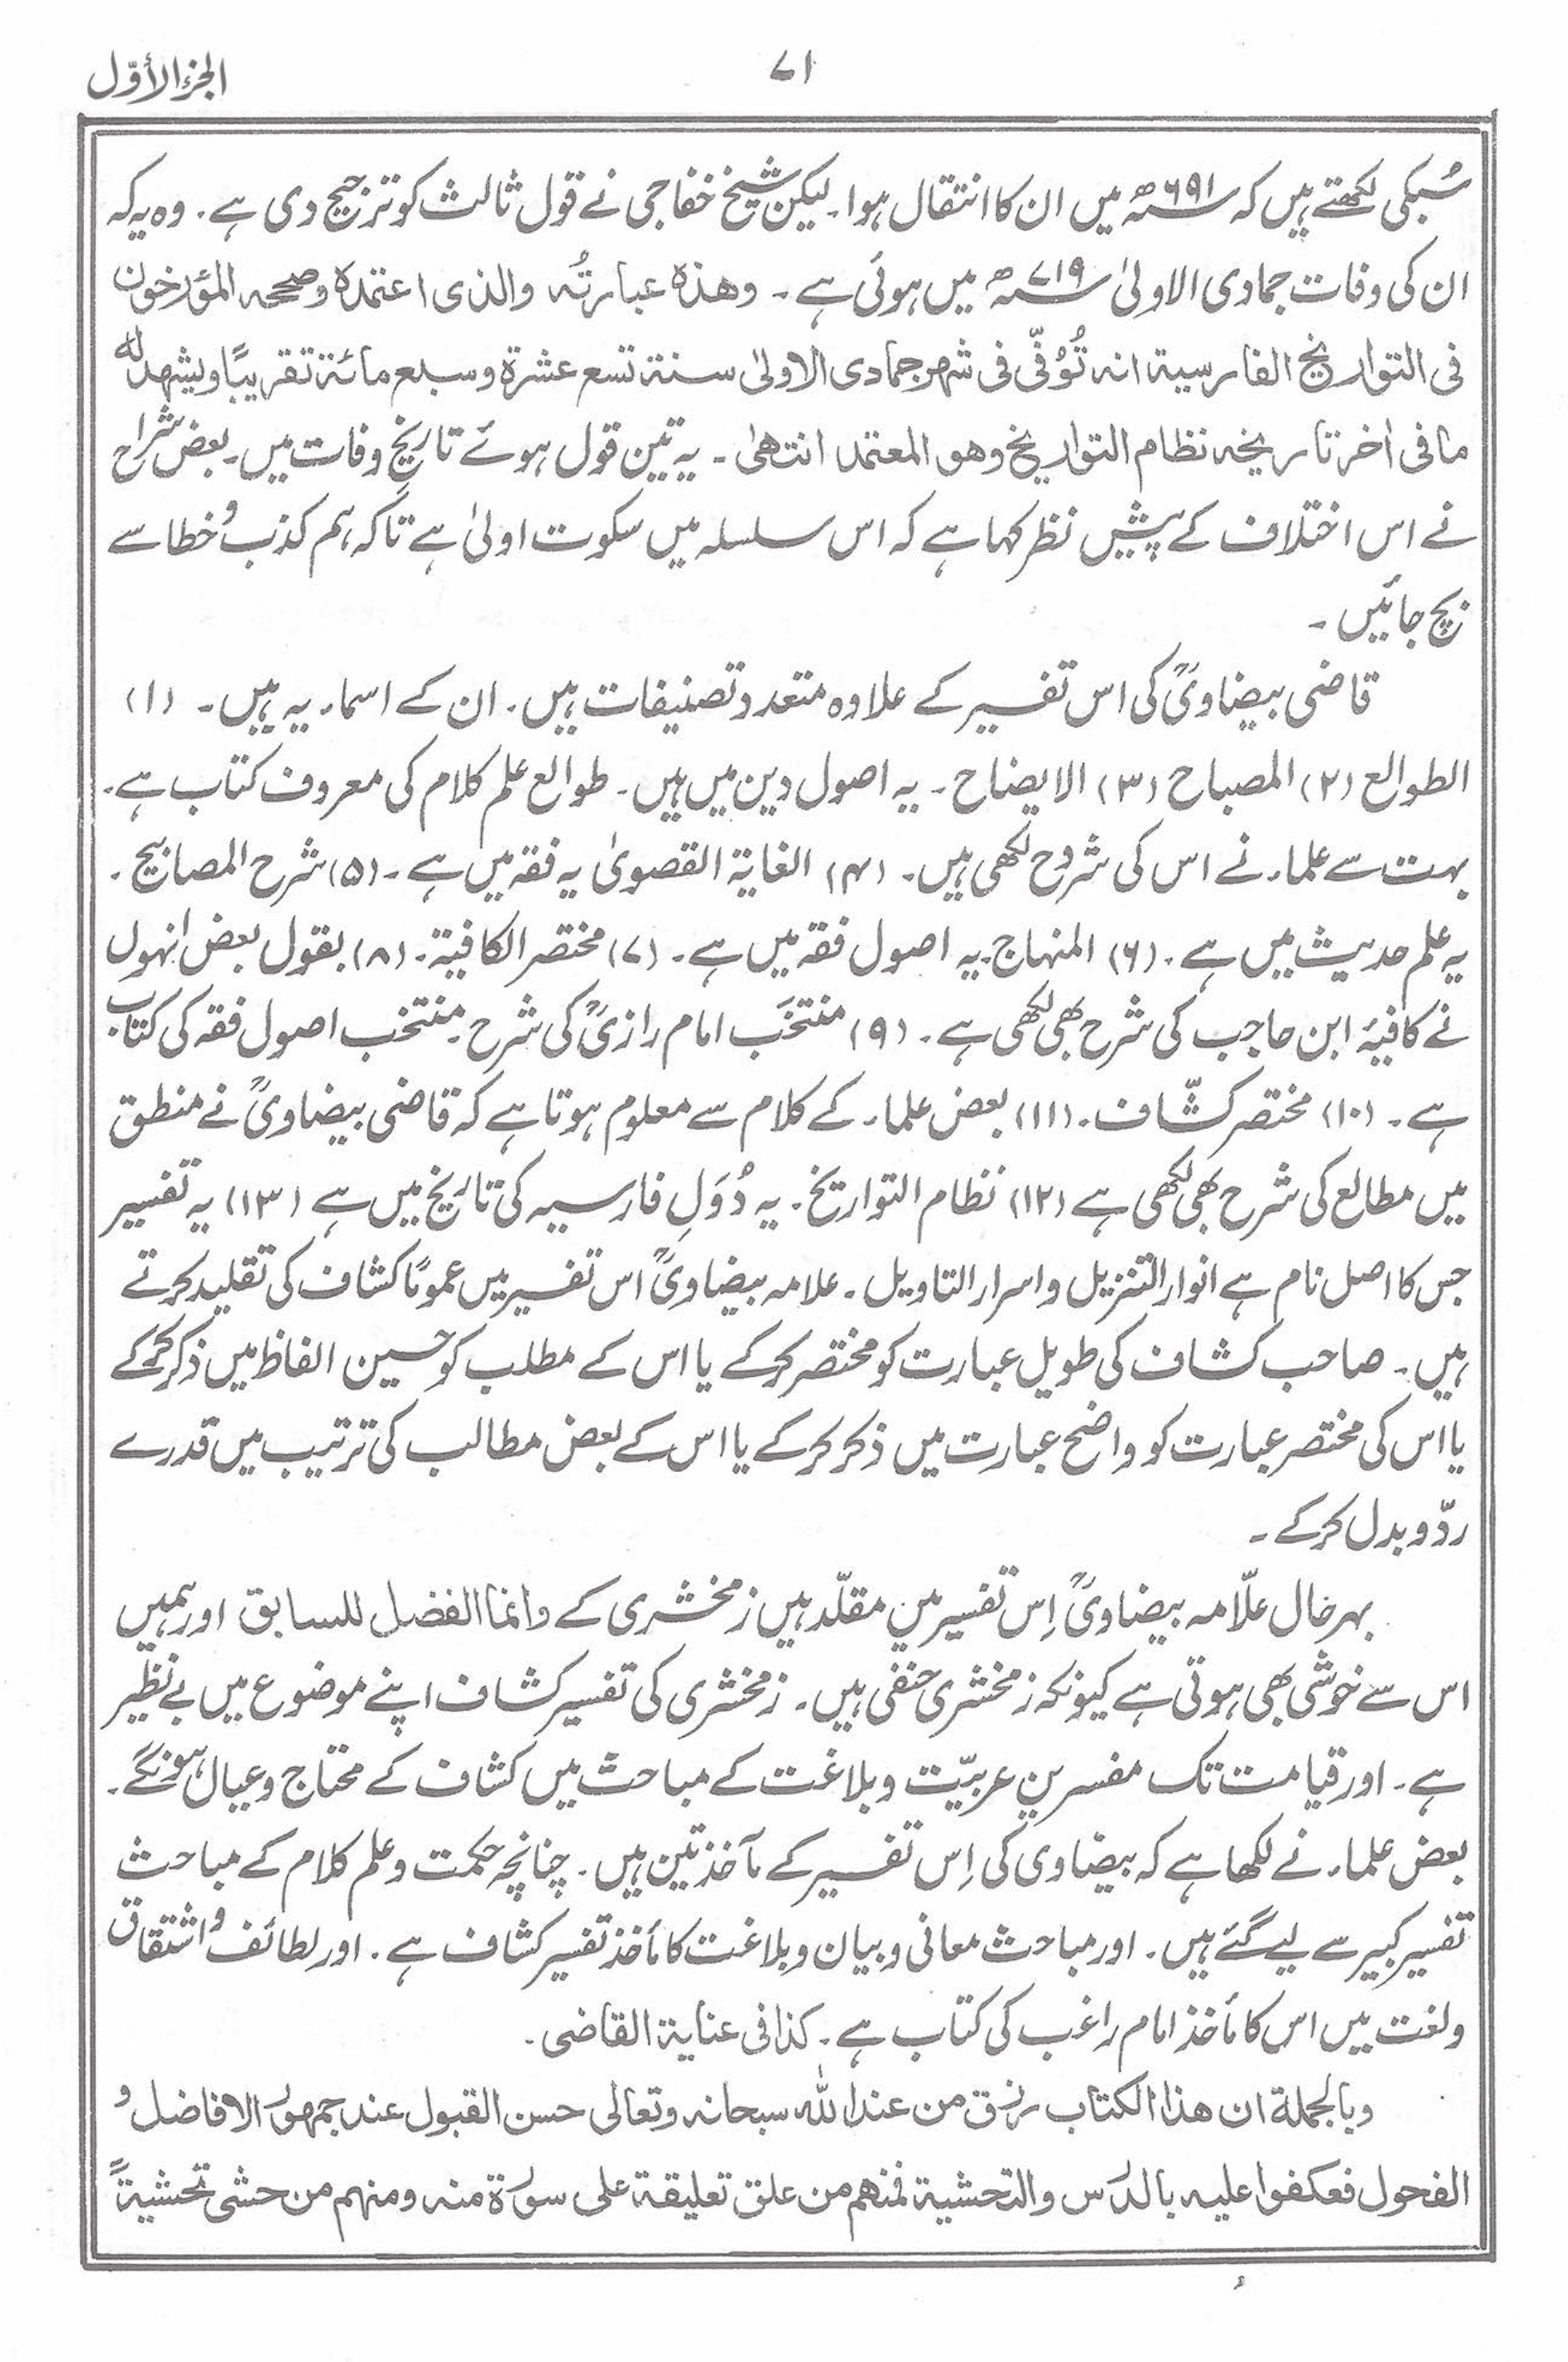 الجزء الأوّل
۷۱
سُبکی لکھتے ہیں کہ ۶۹۱ھ میں ان کا انتقال ہوا۔ لیکن شیخ خفاجی نے قول ثالث کو ترجیح دی ہے۔ وہ یہ کہ
ان کی وفات جمادی الاولیٰ ۷۱۹ھ میں ہوئی ہے۔ وھذہ عبارتُہ والذی اعتمدہ وصححہ المؤرخون
فی التواریخ الفارسیۃ انہ تُوُفّی فی شھر جمادی الاولیٰ سنۃ تسع عشرۃ وسبع مائۃ تقریبًا ویشھد لہ
ما فی اٰخر تاریخہ نظام التواریخ وھو المعتمد انتھیٰ۔ یہ تین قول ہوئے تاریخِ وفات میں۔ بعض شراح
نے اس اختلاف کے پیشِ نظر کہا ہے کہ اس سلسلہ میں سکوت اولیٰ ہے تاکہ ہم کذب و خطا سے
بچ جائیں۔
قاضی بیضاویؒ کی اس تفسیر کے علاوہ متعدد تصنیفات ہیں۔ ان کے اسماء یہ ہیں۔ (۱)
الطوالع (۲) المصباح (۳) الایضاح۔ یہ اصول دین میں ہیں۔ طوالع علم کلام کی معروف کتاب ہے۔
بہت سے علماء نے اس کی شروح لکھی ہیں۔ (۴) الغایۃ القصویٰ یہ فقہ میں ہے۔ (۵) شرح المصابیح۔
یہ علم حدیث میں ہے۔ (۶) المنہاج۔ یہ اصول فقہ میں ہے۔ (۷) مختصر الکافیۃ۔ (۸) بقول بعض انہوں
نے کافیۂ ابن حاجب کی شرح بھی لکھی ہے۔ (۹) منتخَب امام رازیؒ کی شرح۔ منتخب اصول فقہ کی کتاب
ہے۔ (۱۰) مختصر کشّاف۔ (۱۱) بعض علماء کے کلام سے معلوم ہوتا ہے کہ قاضی بیضاویؒ نے منطق
میں مطالع کی شرح بھی لکھی ہے (۱۲) نظام التواریخ۔ یہ دُوَلِ فارسیہ کی تاریخ میں ہے (۱۳) یہ تفسیر
جس کا اصل نام ہے انوار التنزیل و اسرار التاویل۔ علامہ بیضاویؒ اس تفسیر میں عمومًا کشاف کی تقلید کرتے
ہیں۔ صاحب کشاف کی طویل عبارت کو مختصر کرکے یا اس کے مطلب کو حسین الفاظ میں ذکر کرکے
یا اس کی مختصر عبارت کو واضح عبارت میں ذکر کرکے یا اس کے بعض مطالب کی ترتیب میں قدرے
ردّ و بدل کرکے۔
بہرحال علّامہ بیضاویؒ اِس تفسیر میں مقلّد ہیں زمخشری کے وانما الفضل للسابق اور ہمیں
اس سے خوشی بھی ہوتی ہے کیونکہ زمخشری حنفی ہیں۔ زمخشری کی تفسیر کشاف اپنے موضوع میں بے نظیر
ہے۔ اور قیامت تک مفسرین عربیّت و بلاغت کے مباحث میں کشاف کے محتاج و عیال ہونگے۔
بعض علماء نے لکھا ہے کہ بیضاوی کی اِس تفسیر کے مآخذ تین ہیں۔ چنانچہ حکمت و علم کلام کے مباحث
تفسیر کبیر سے لیے گئے ہیں۔ اور مباحث معانی و بیان و بلاغت کا مأخذ تفسیر کشاف ہے۔ اور لطائف و اشتقاق
و لغت میں اس کا مأخذ امام راغب کی کتاب ہے۔ کذا فی عنایۃ القاضی۔
وبالجملۃ ان ھذا الکتاب رزق من عند اللہ سبحانہ وتعالی حسن القبول عند جمھور الافاضل و
الفحول فعکفوا علیہ بالدرس والتحشیۃ فمنھم من علق تعلیقۃ علی سورۃ منہ ومنھم من حشی تحشیۃً